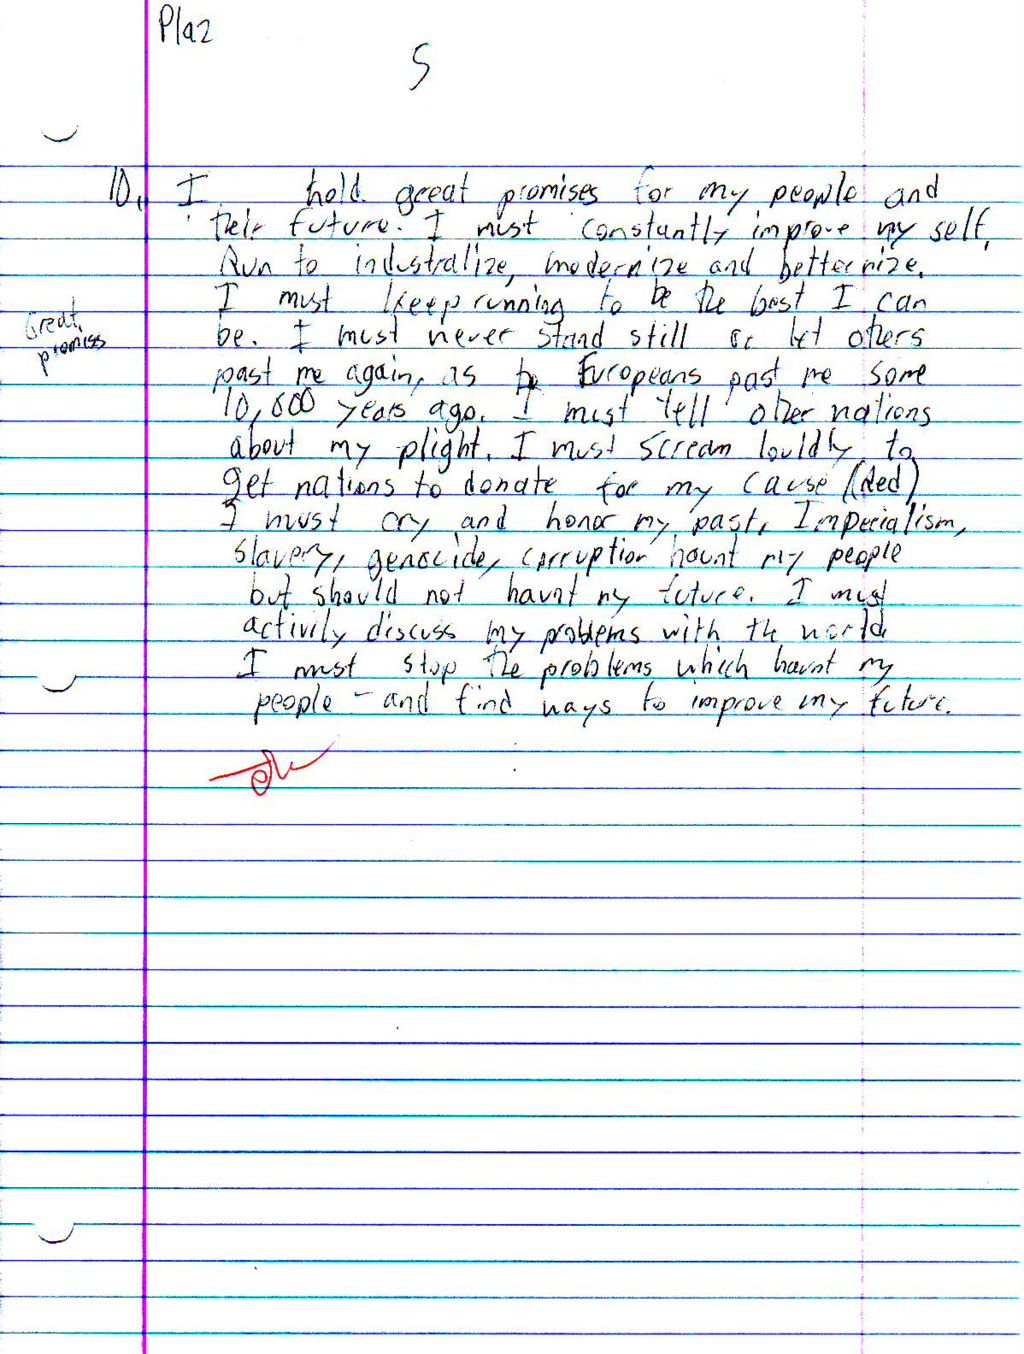 Pla2
5
10. I hold great promises for my people and
their future. I must constantly improve my self,
Run to industralize, modernize and betternize.
I must keep running to be the best I can
Great promises
be. I must never stand still or let others
past me again, as Europeans past me some
10,000 years ago. I must tell other nations
about my plight. I must scream louldly to
get nations to donate for my cause (Red)
I must cry and honor my past, Imperialism,
slavery, genocide, corruption haunt my people
but should not haunt my future. I must
activily discuss my problems with the world
I must stop the problems which haunt my
people - and find ways to improve my future.